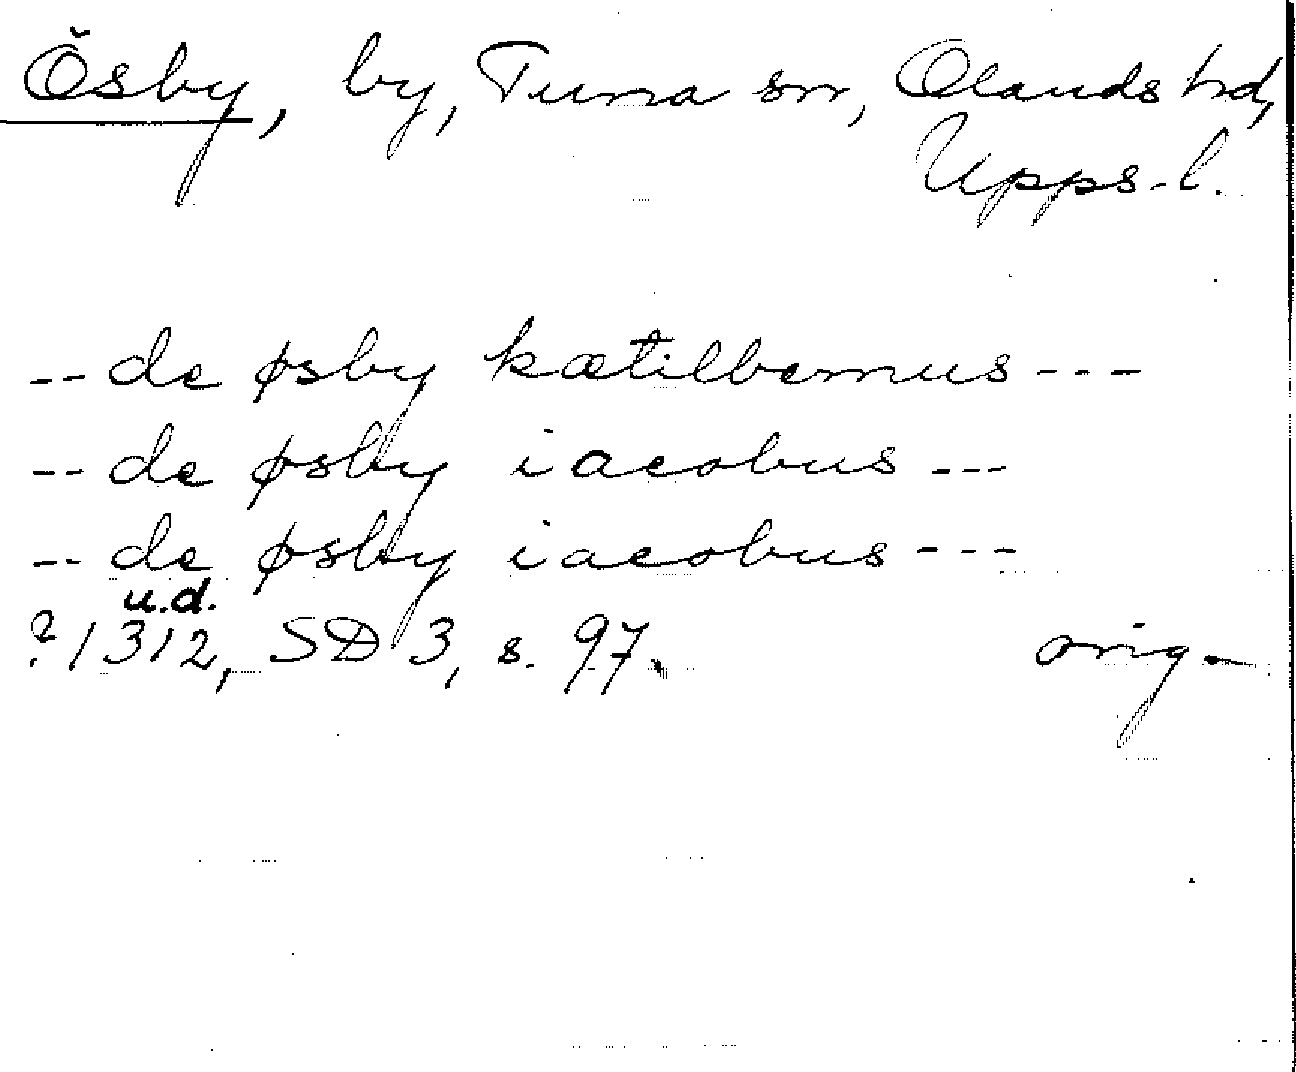 Ösby, by, Tuna sn, Olands hd,
Upps. l.
-- de øsby kætilbernus ---
-- de øsby iacobus ---
-- de øsby iacobus ---
u.d.
? 1312, SD 3, s. 97. orig.